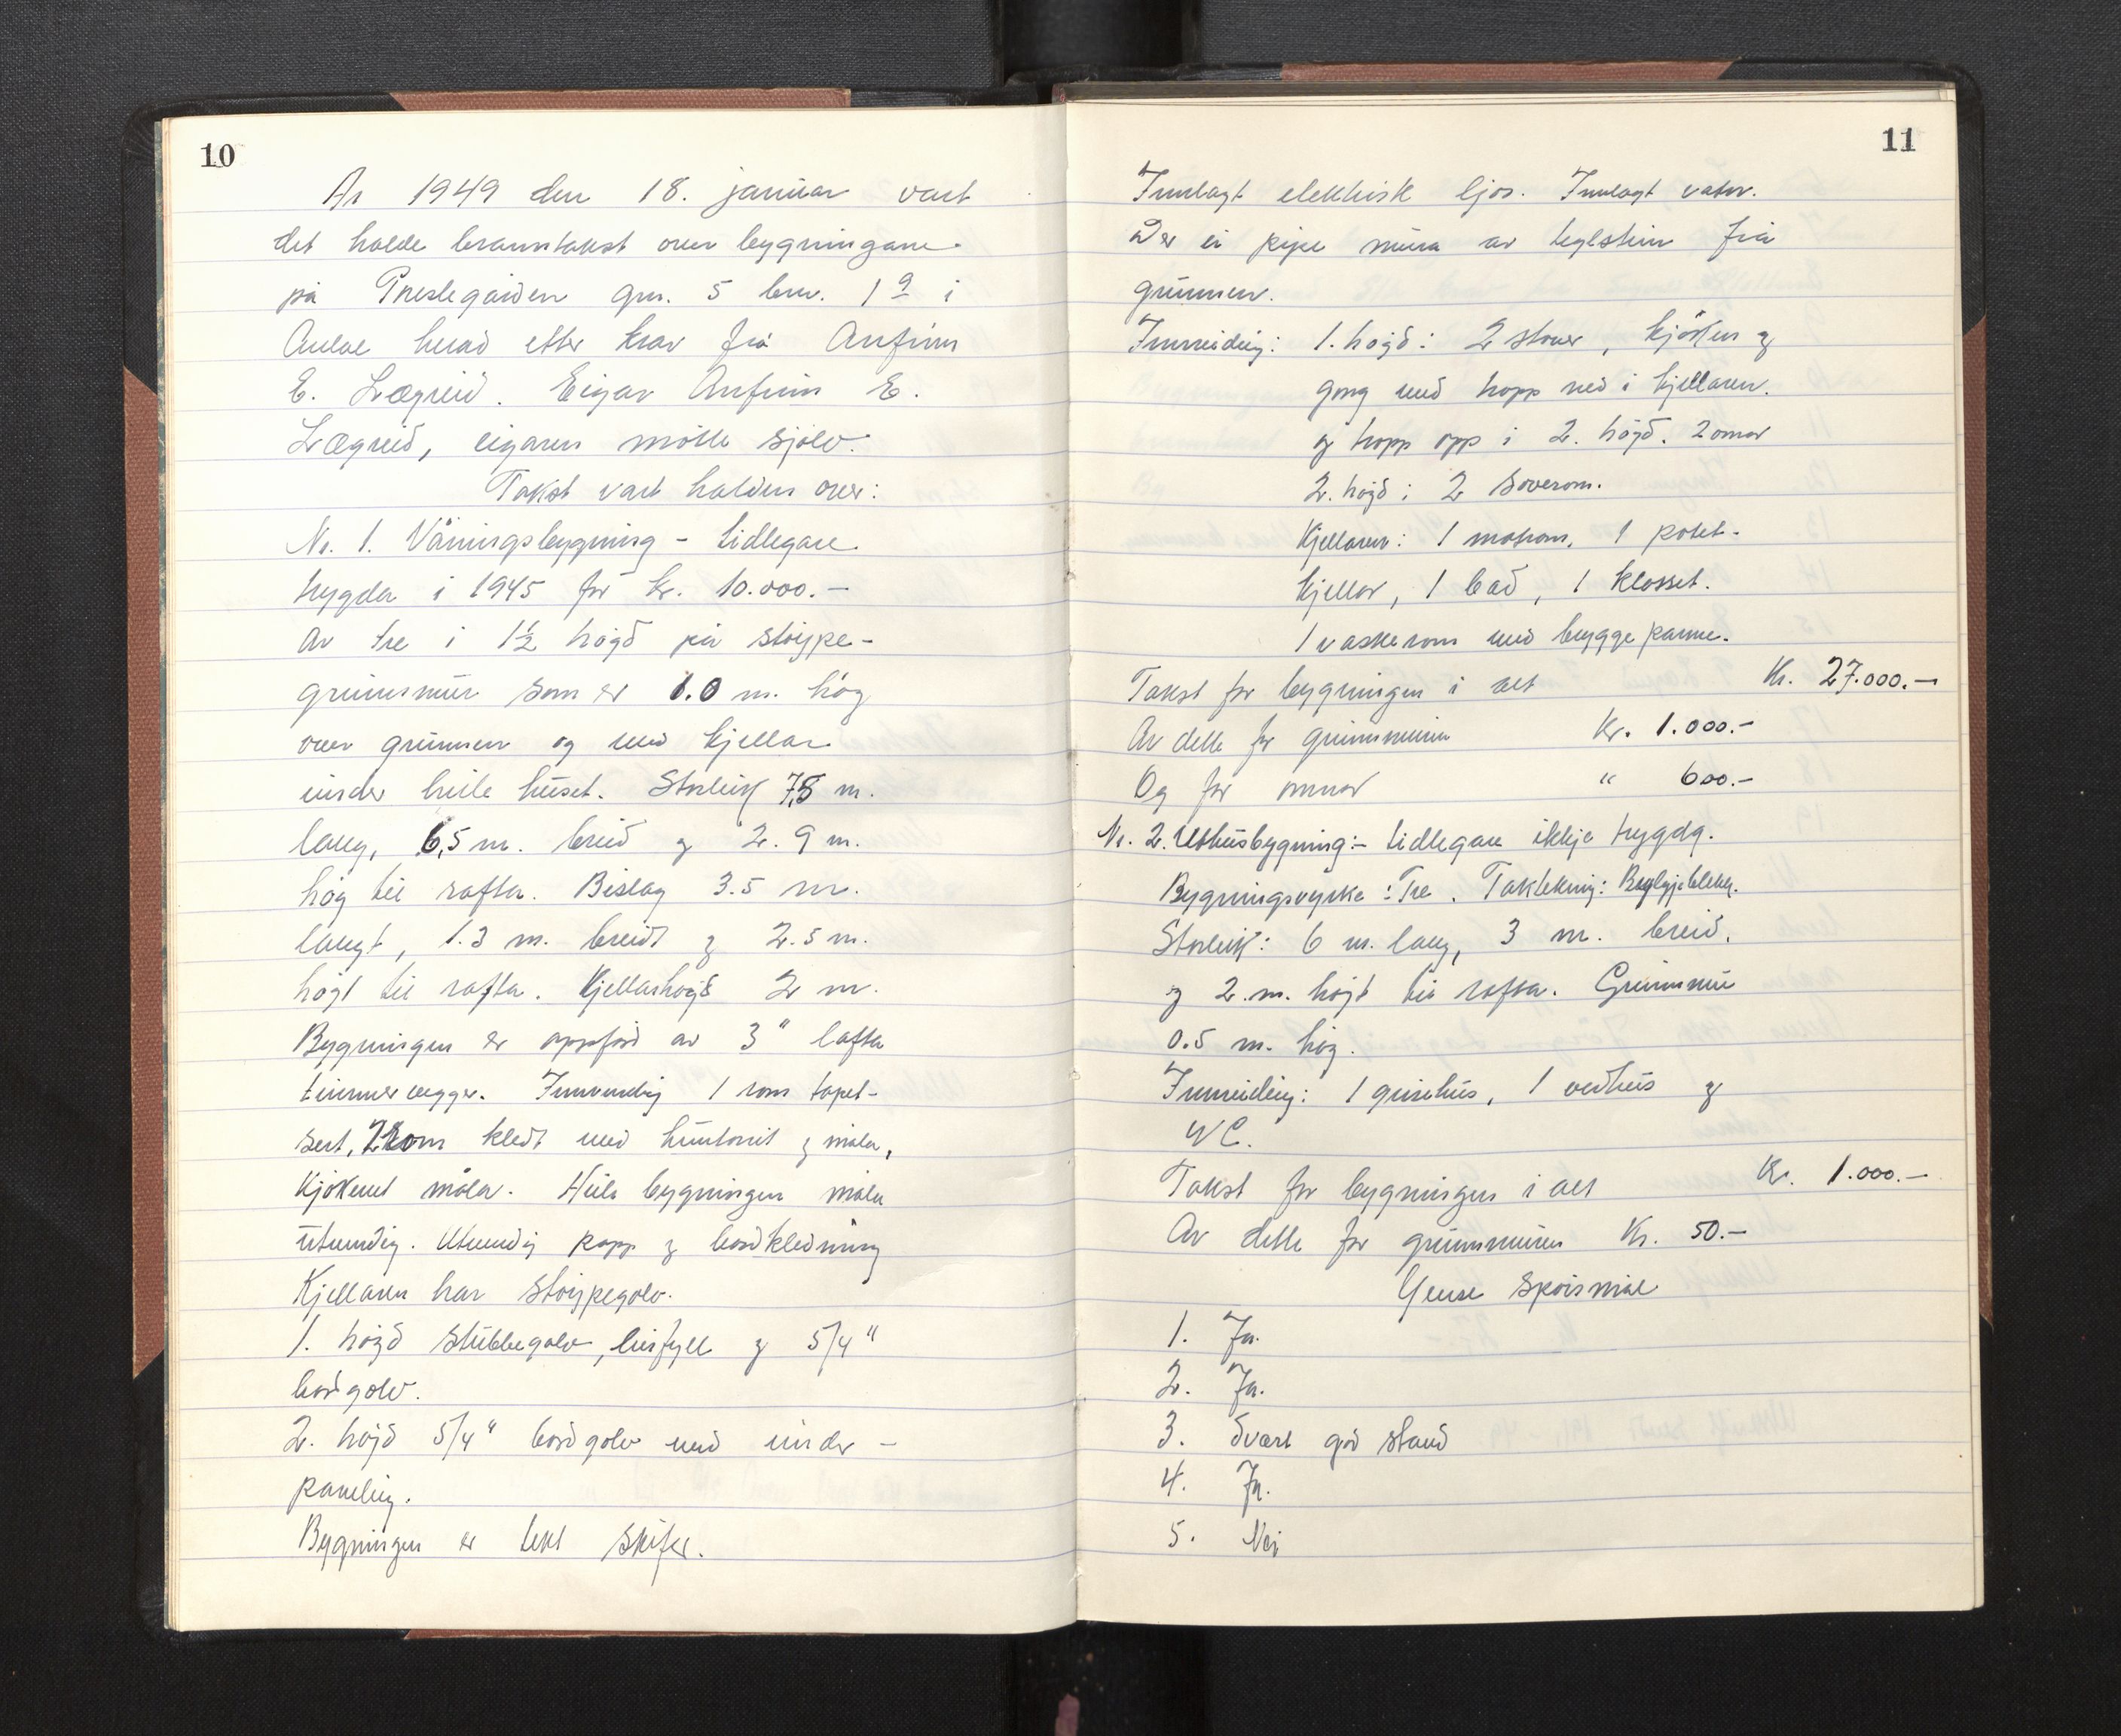 10
År 1949 den 18. januar vart
det halde branntakst over bygningane
på Prestegarden gnr. 5 bnr. 1 9 i
Aulae herad etter krav frå Anfinn
E. Lægreid. Eigar Anfinn E.
Lægreid, eigaren møtte sjølv.
Takst vart halden over:
Nr. 1. Våningsbygning - tidlegare
trygda i 1945 for kr. 10.000.-
Av tre i 1½ høgd på støype-
grunnmur som er 1.0 m. høg
over grunnen og med kjellar
under heile huset. Storleik 7,8 m.
lang, 6,5 m. breid og 2.9 m.
høg til rafta. Bislag 3.5 m.
langt, 1.3 m. breidt og 2.5 m.
høgt til rafta. Kjellarhøgd 2 m.
Bygningen er oppførd av 3" lafta
timmervegger. Innvendig 1 rom tapet-
sert, 2 rom kledt med huntonit og måla,
Kjøkenet måla. Heile bygningen måla
utvendig. Utvendig papp og bordkledning
Kjellaren har støypegolv.
1. høgd stubbegolv, leirfyll og 5/4"
bordgolv.
2. høgd 5/4" bordgolv med under-
paneling.
Bygningen er tekt skifer.
11
Innlagt elektrisk ljos. Innlagt vatn.
Der ei pipe mura av teglstein frå
grunnen.
Innreiding: 1. høgd: 2 stover, kjøken og
gong med tropp ned i kjellaren.
og tropp opp i 2. høgd. 2 omnar
2. høgd: 2 soverom.
Kjellaren: 1 matrom, 1 potet-
kjellar, 1 bad, 1 klosset.
1 vaskerom med bryggepanne.
Takst for bygningen i alt Kr. 27.000.-
Av dette for grunnmuren Kr. 1.000.-
Og for omnar " 600.-
Nr. 2. Uthusbygning:- tidlegare ikkje trygdg.
Bygningsvyrke: Tre. Taktekning: Bylgjeblekk.
Storleik: 6 m. lang, 3 m. breid.
og 2.m. høgt til rafta. Grunnmur
0.5 m. høg.
Innreiding: 1 grisehus, 1 vedhus og
WC.
Takst for bygningen i alt Kr. 1.000.-
Av dette for grunnmuren Kr. 50.-
Ymse spørsmål
1. Ja.
2. Ja.
3. Svært god stand
4. Ja.
5. Nei